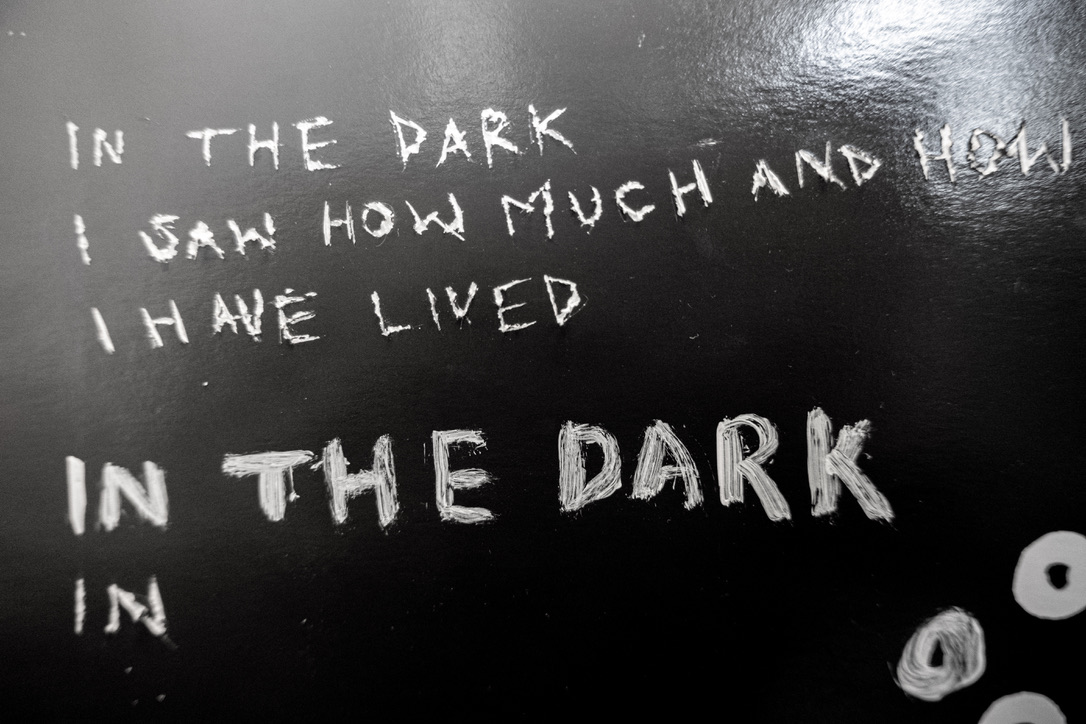 IN THE DARK
I SAW HOW MUCH AND HOW
I HAVE LIVED
IN THE DARK
IN